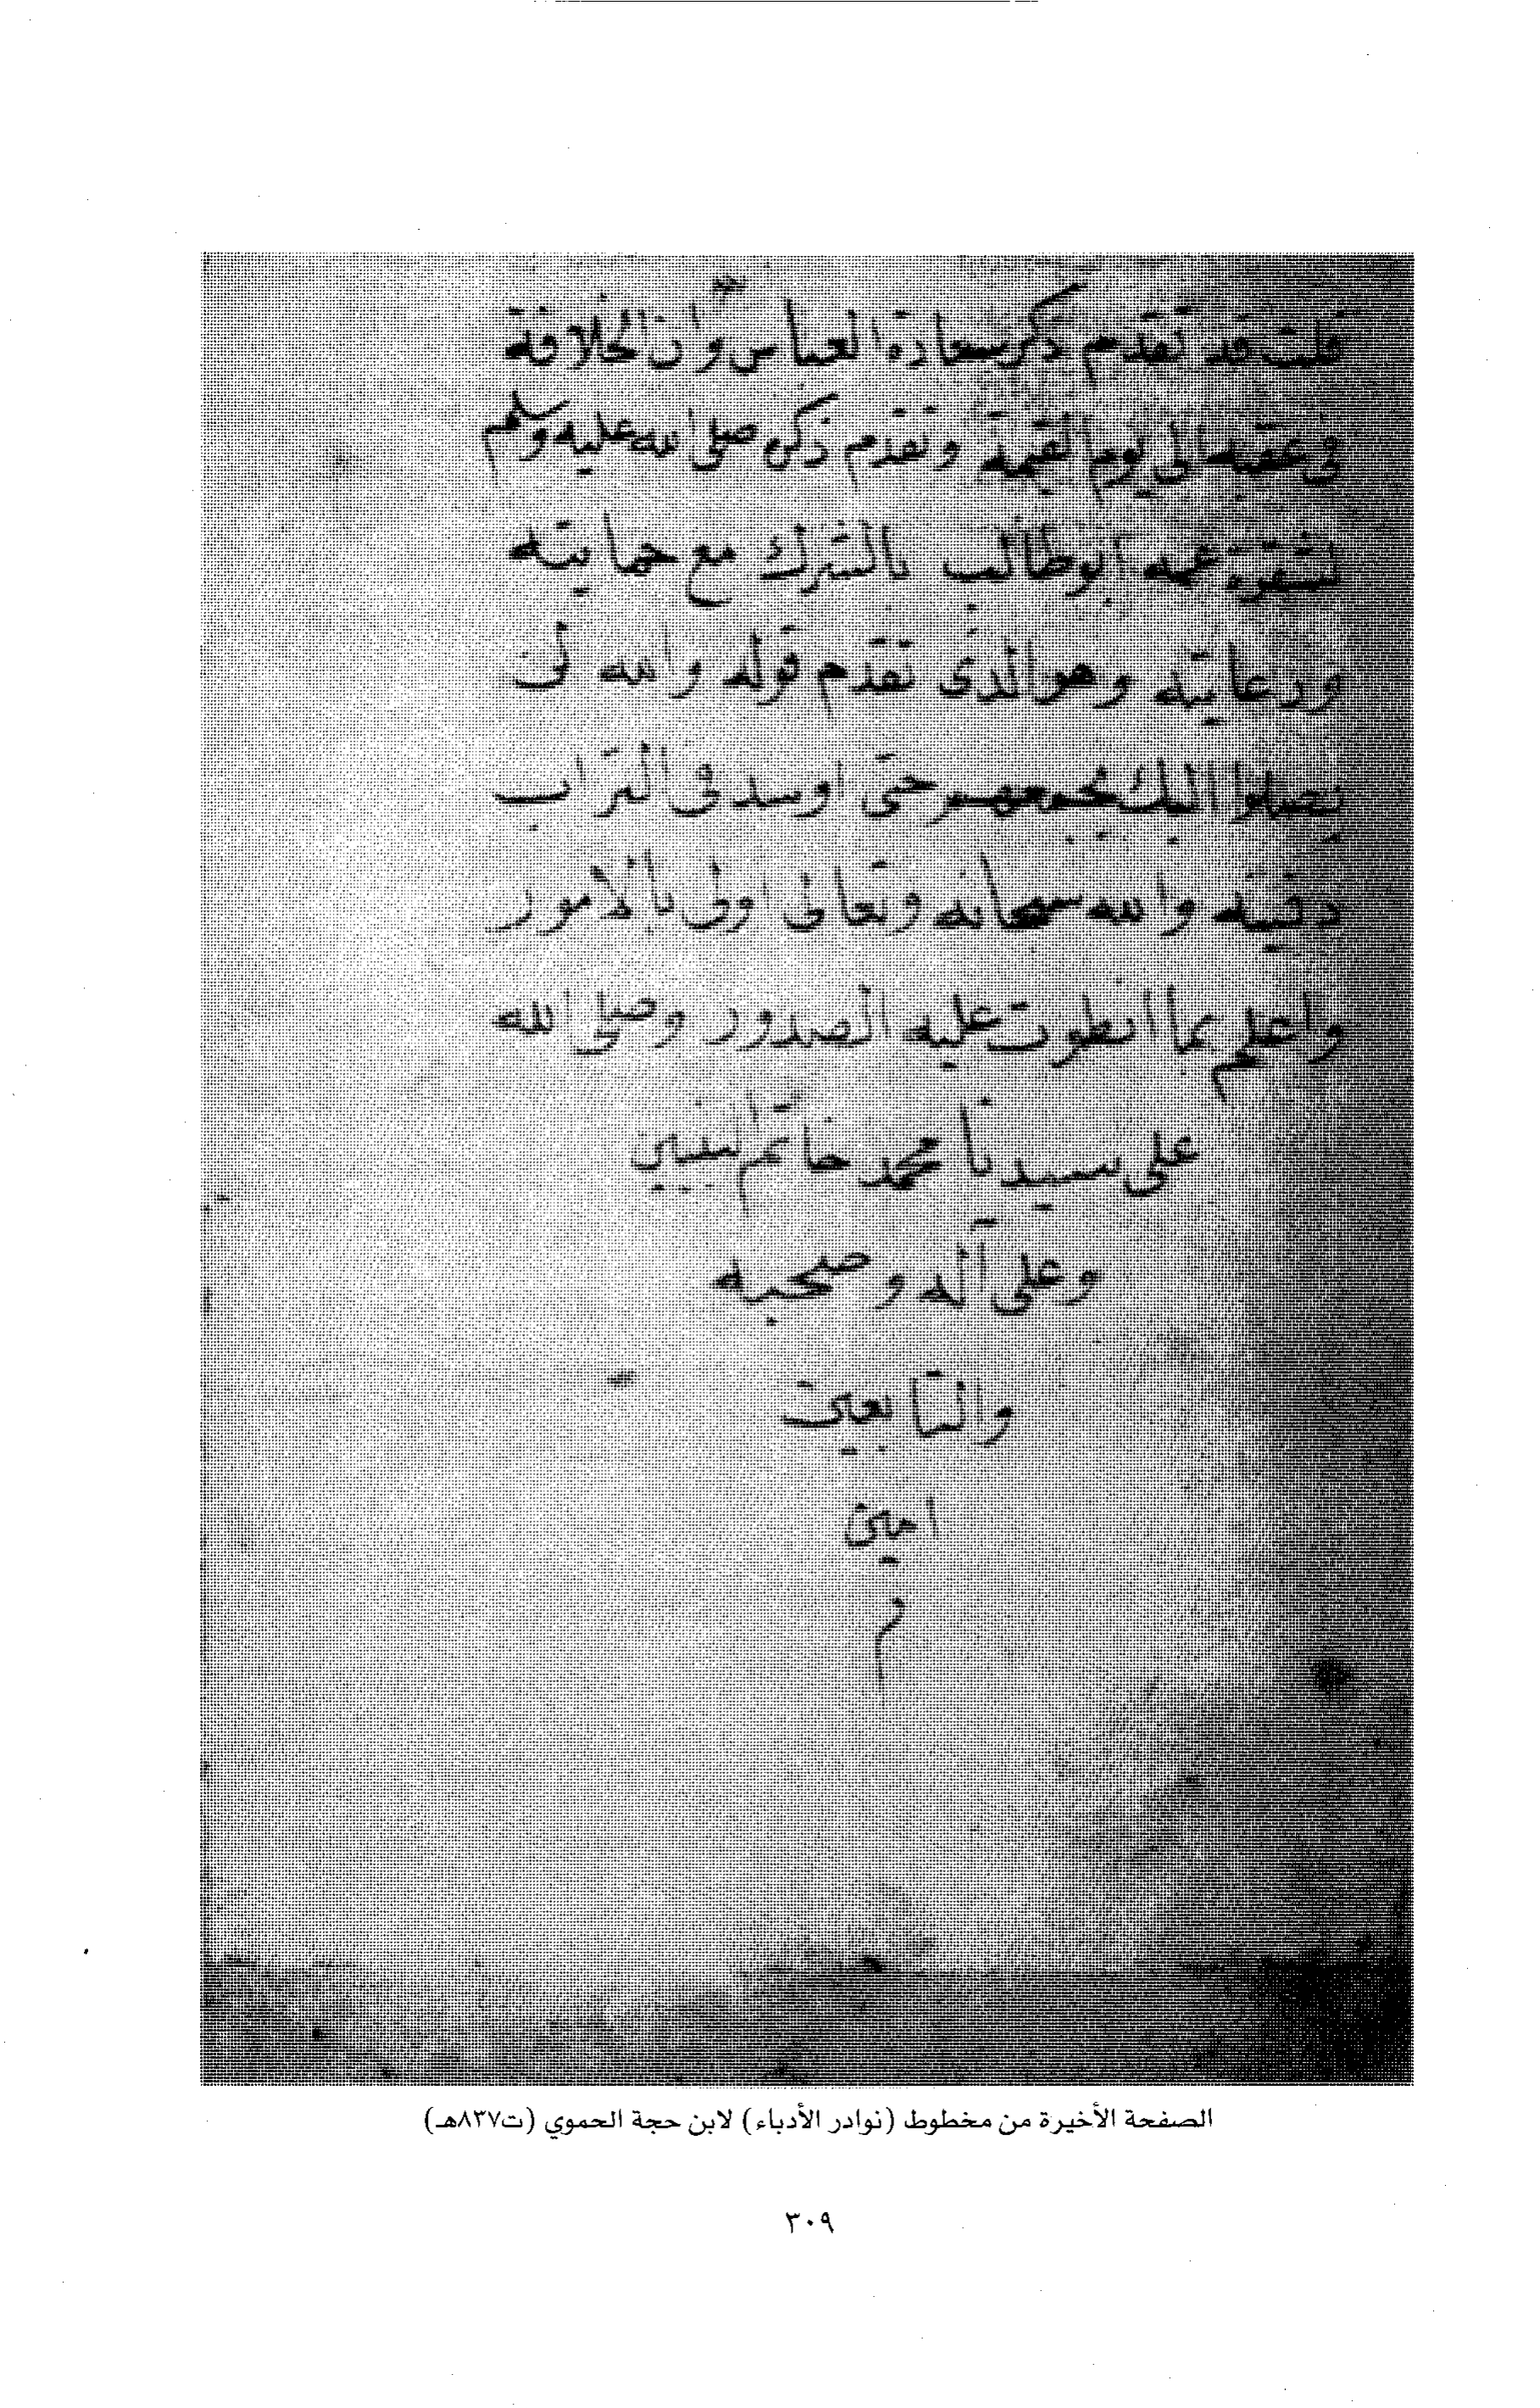 قلت قد تقدم ذكر سعادة العباس وان الخلافة
في عقبه الى يوم القيمة وتقدم ذكره صلى الله عليه وسلم
لشقوة عمه ابو طالب بالشرك مع حمايته
ورعايته وهو الذى تقدم قوله والله لن
يصلوا اليك بجمعهم حتى اوسد في التراب
دفينه والله سبحانه وتعالى اولى بالامور
واعلم بما انطوت عليه الصدور وصلى الله
على سيدنا محمد خاتم النبيين
وعلى آله وصحبه
والتابعين
امين
م
الصفحة الأخيرة من مخطوط (نوادر الأدباء) لابن حجة الحموي (ت٨٣٧هـ)
٣٠٩